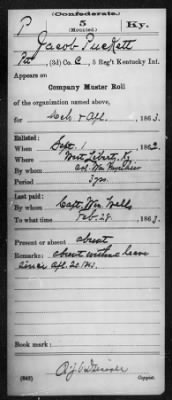 (Confederate.)
P 5 Ky.
(Mounted.)
Jacob Puckett
Pvt, (3d) Co. C, 5 Reg't Kentucky Inf.
Appears on
Company Muster Roll
of the organization named above,
for Mch & Apl, 1863.
Enlisted:
When Sept. 1, 1862.
Where West Liberty, Ky.
By whom Col. Wm
Period 3 yrs.
Last paid:
By whom Capt. Wm. Wells
To what time Feb. 28, 1863.
Present or absent absent
Remarks: absent without leave
since Apl. 20 1863.
Book mark:
(642) Copyist.